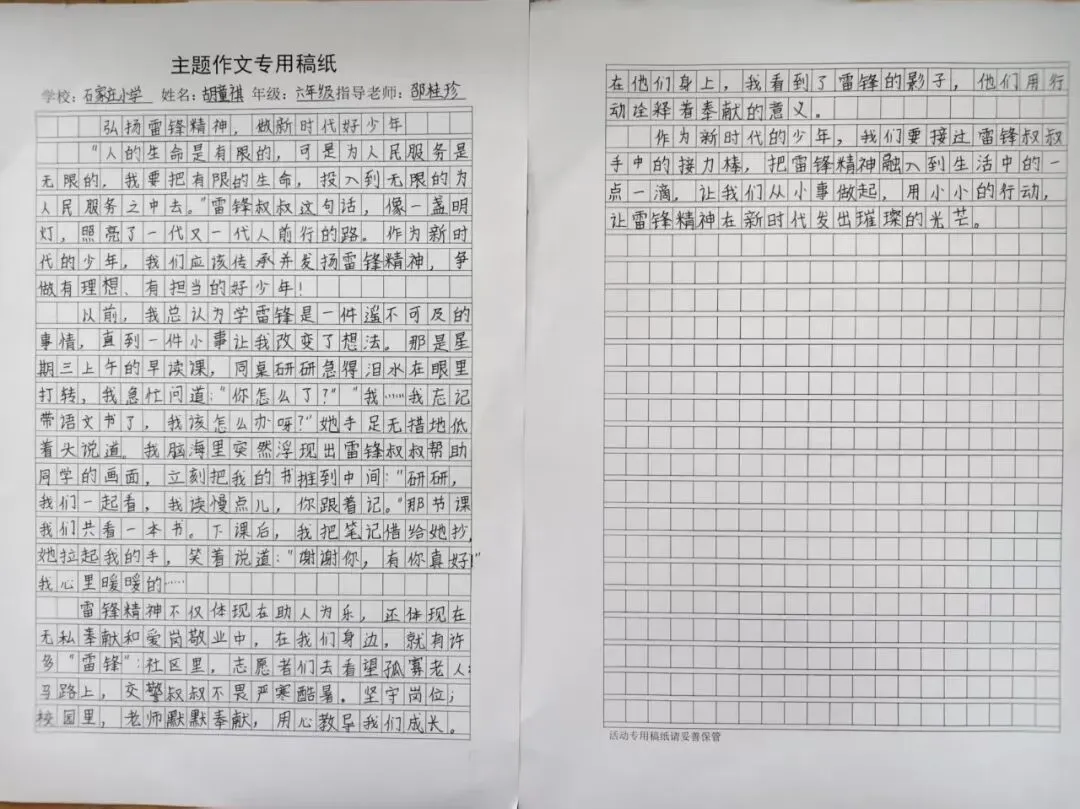 主题作文专用稿纸
学校：石家庄小学 姓名：胡董祺 年级：六年级 指导老师：邵桂珍
弘扬雷锋精神，做新时代好少年
“人的生命是有限的，可是为人民服务是
无限的，我要把有限的生命，投入到无限的为
人民服务之中去。”雷锋叔叔这句话，像一盏明
灯，照亮了一代又一代人前行的路。作为新时
代的少年，我们应该传承并发扬雷锋精神，争
做有理想、有担当的好少年！
以前，我总认为学雷锋是一件遥不可及的
事情，直到一件小事让我改变了想法。那是星
期三上午的早读课，同桌研研急得泪水在眼里
打转，我急忙问道：“你怎么了？”“我……我忘记
带语文书了，我该怎么办呀？”她手足无措地低
着头说道。我脑海里突然浮现出雷锋叔叔帮助
同学的画面，立刻把我的书推到中间：“研研，
我们一起看，我读慢点儿，你跟着记。”那节课
我们共看一本书。下课后，我把笔记借给她抄，
她拉起我的手，笑着说道：“谢谢你，有你真好！”
我心里暖暖的……
雷锋精神不仅体现在助人为乐，还体现在
无私奉献和爱岗敬业中，在我们身边，就有许
多“雷锋”：社区里，志愿者们去看望孤寡老人；
马路上，交警叔叔不畏严寒酷暑。坚守岗位；
校园里，老师默默奉献，用心教导我们成长。
在他们身上，我看到了雷锋的影子，他们用行
动诠释着奉献的意义。
作为新时代的少年，我们要接过雷锋叔叔
手中的接力棒，把雷锋精神融入到生活中的一
点一滴，让我们从小事做起，用小小的行动，
让雷锋精神在新时代发出璀璨的光芒。
活动专用稿纸请妥善保管